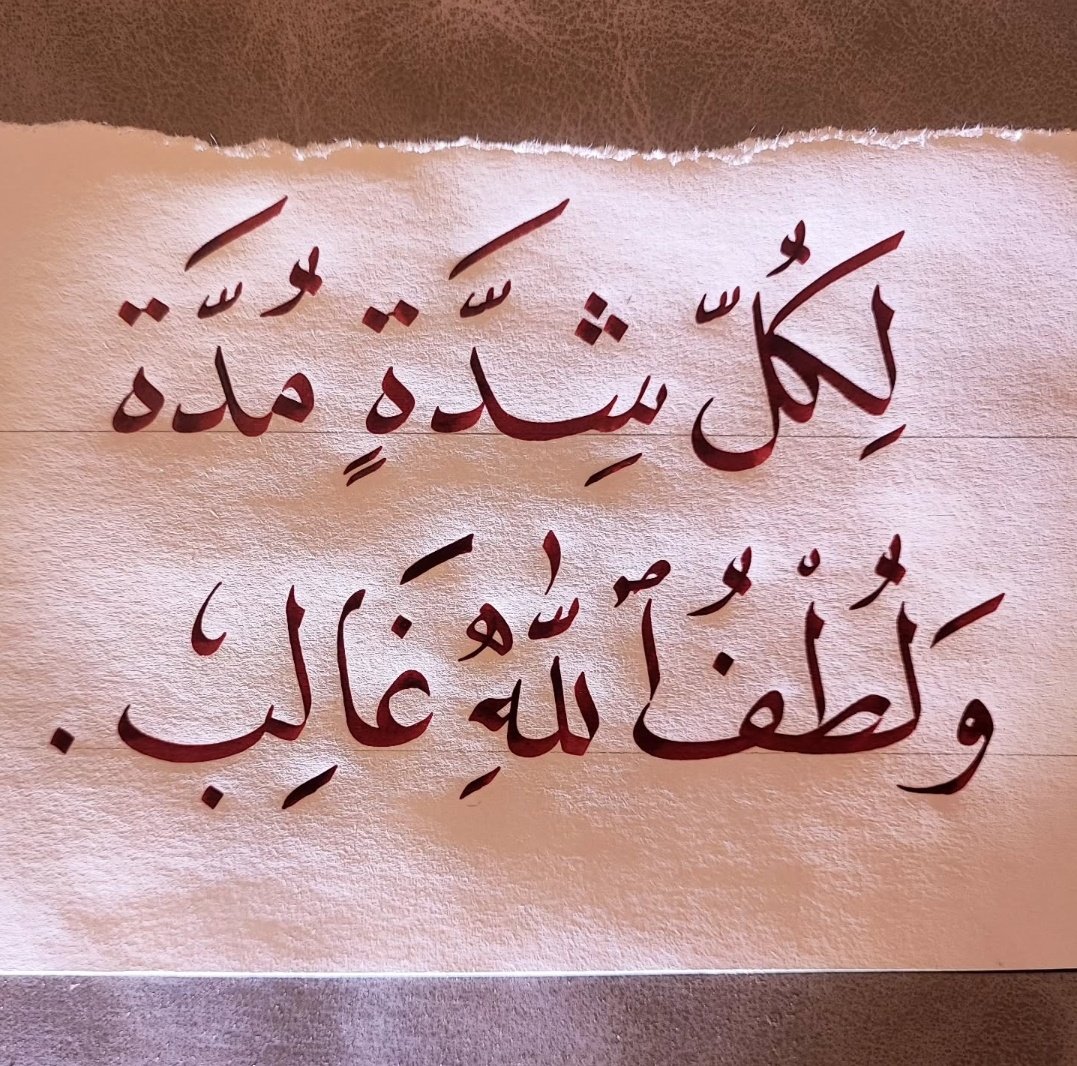 لِكُلِّ شِدَّةٍ مُدَّة
وَلُطْفُ ٱللَّهِ غَالِب.